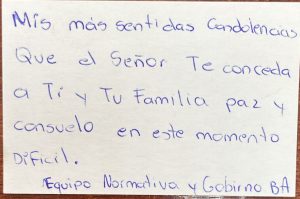 Mis más sentidas Condolencias
Que el Señor Te conceda
a Ti y Tu Familia paz y
consuelo en este momento
Difícil.
Equipo Normativa y Gobirno BA